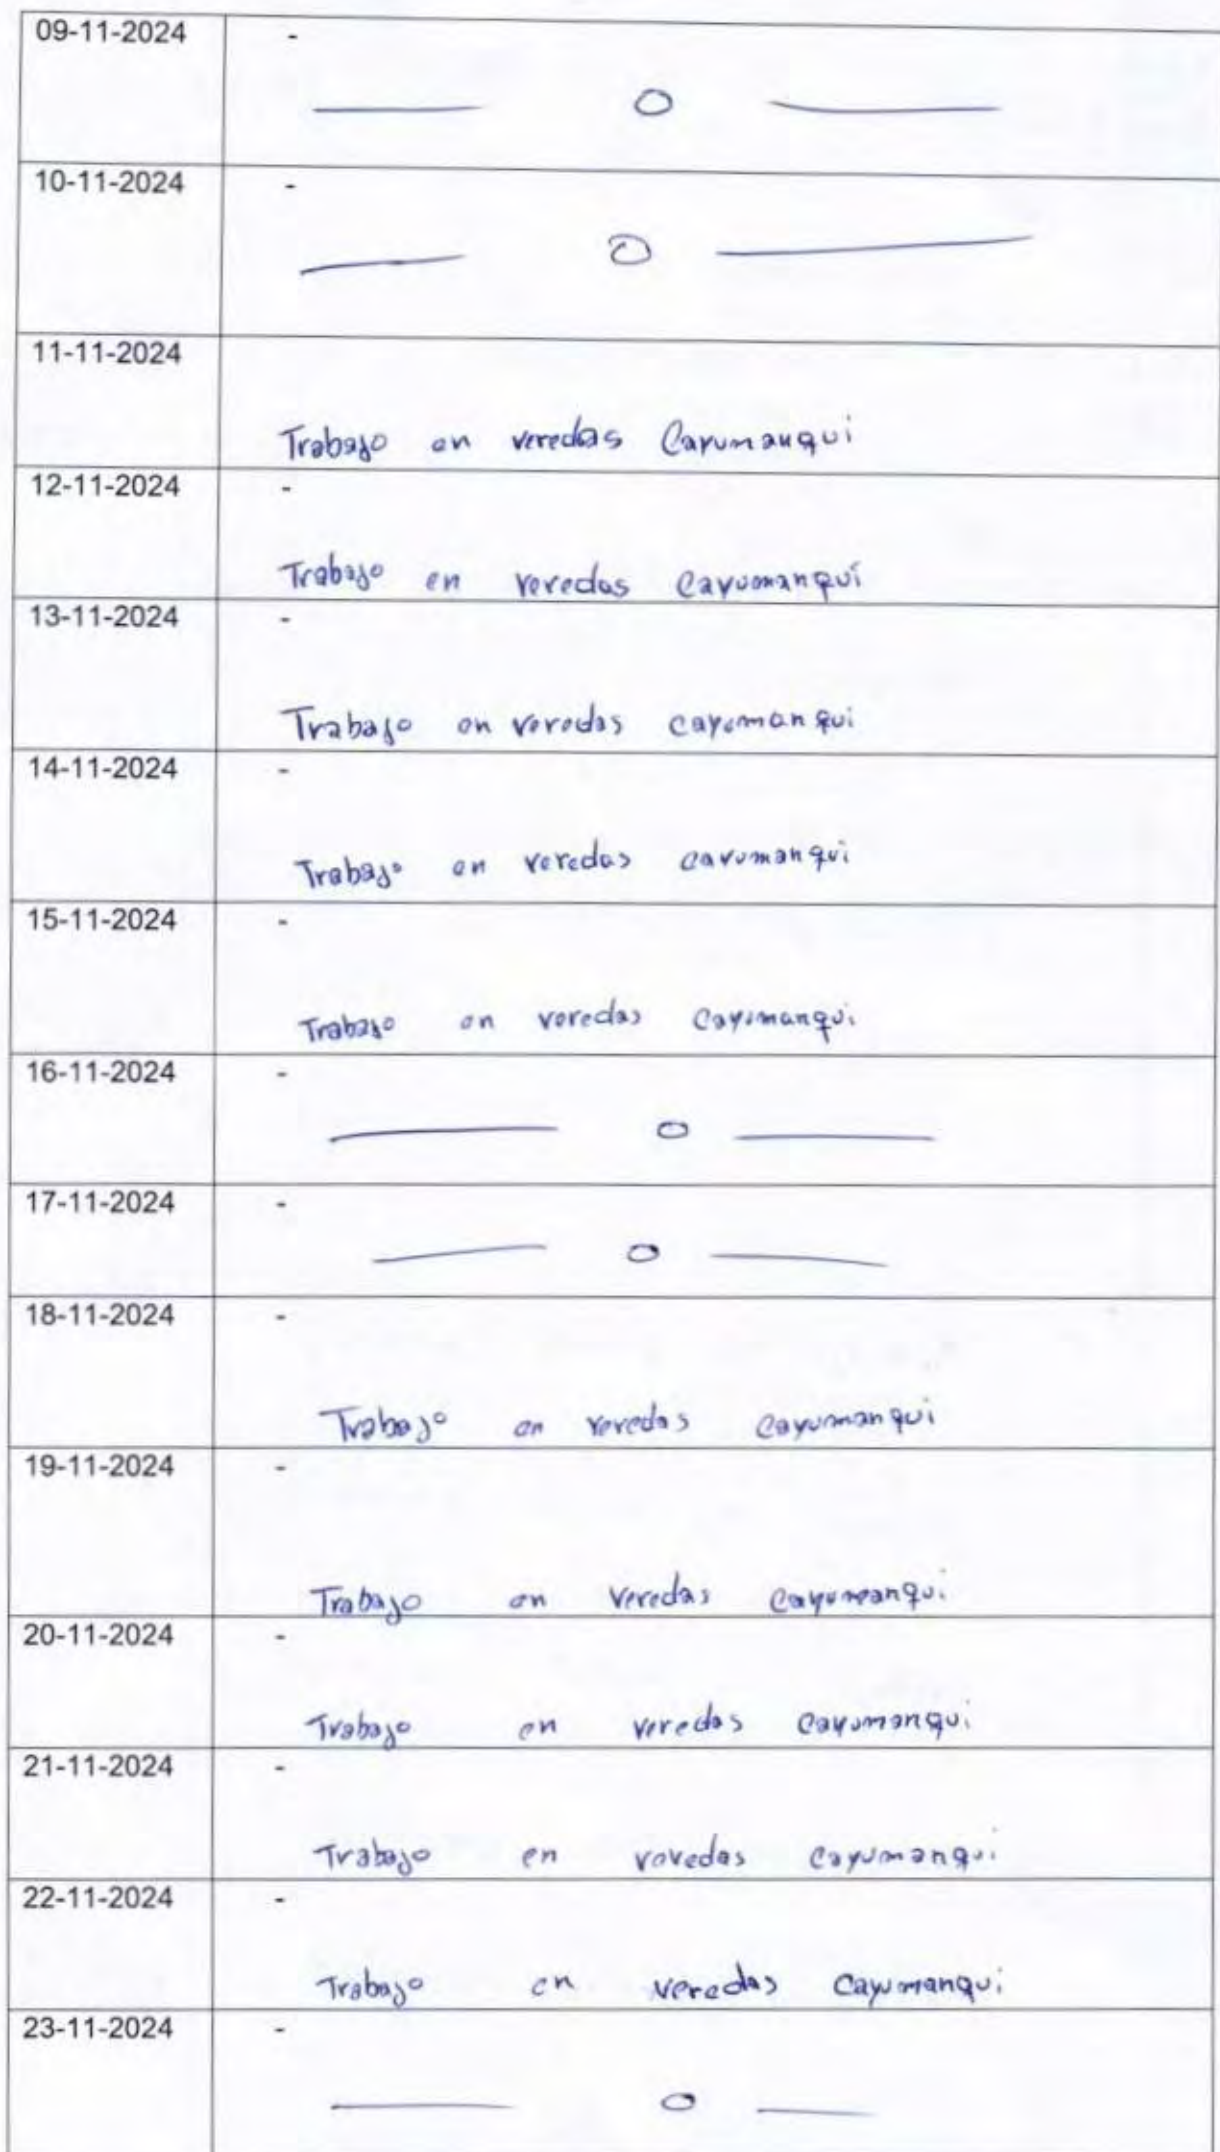 09-11-2024 -
— o —
10-11-2024 -
— o —
11-11-2024
Trabajo en veredas Cayumanqui
12-11-2024 -
Trabajo en veredas Cayumanqui
13-11-2024 -
Trabajo en veredas cayumanqui
14-11-2024 -
Trabajo en veredas cayumanqui
15-11-2024 -
Trabajo en veredas Cayumanqui
16-11-2024 -
— o —
17-11-2024 -
— o —
18-11-2024 -
Trabajo en veredas Cayumanqui
19-11-2024 -
Trabajo en Veredas Cayumanqui
20-11-2024 -
Trabajo en veredas Cayumanqui
21-11-2024 -
Trabajo en veredas Cayumanqui
22-11-2024 -
Trabajo en veredas Cayumanqui
23-11-2024 -
— o —